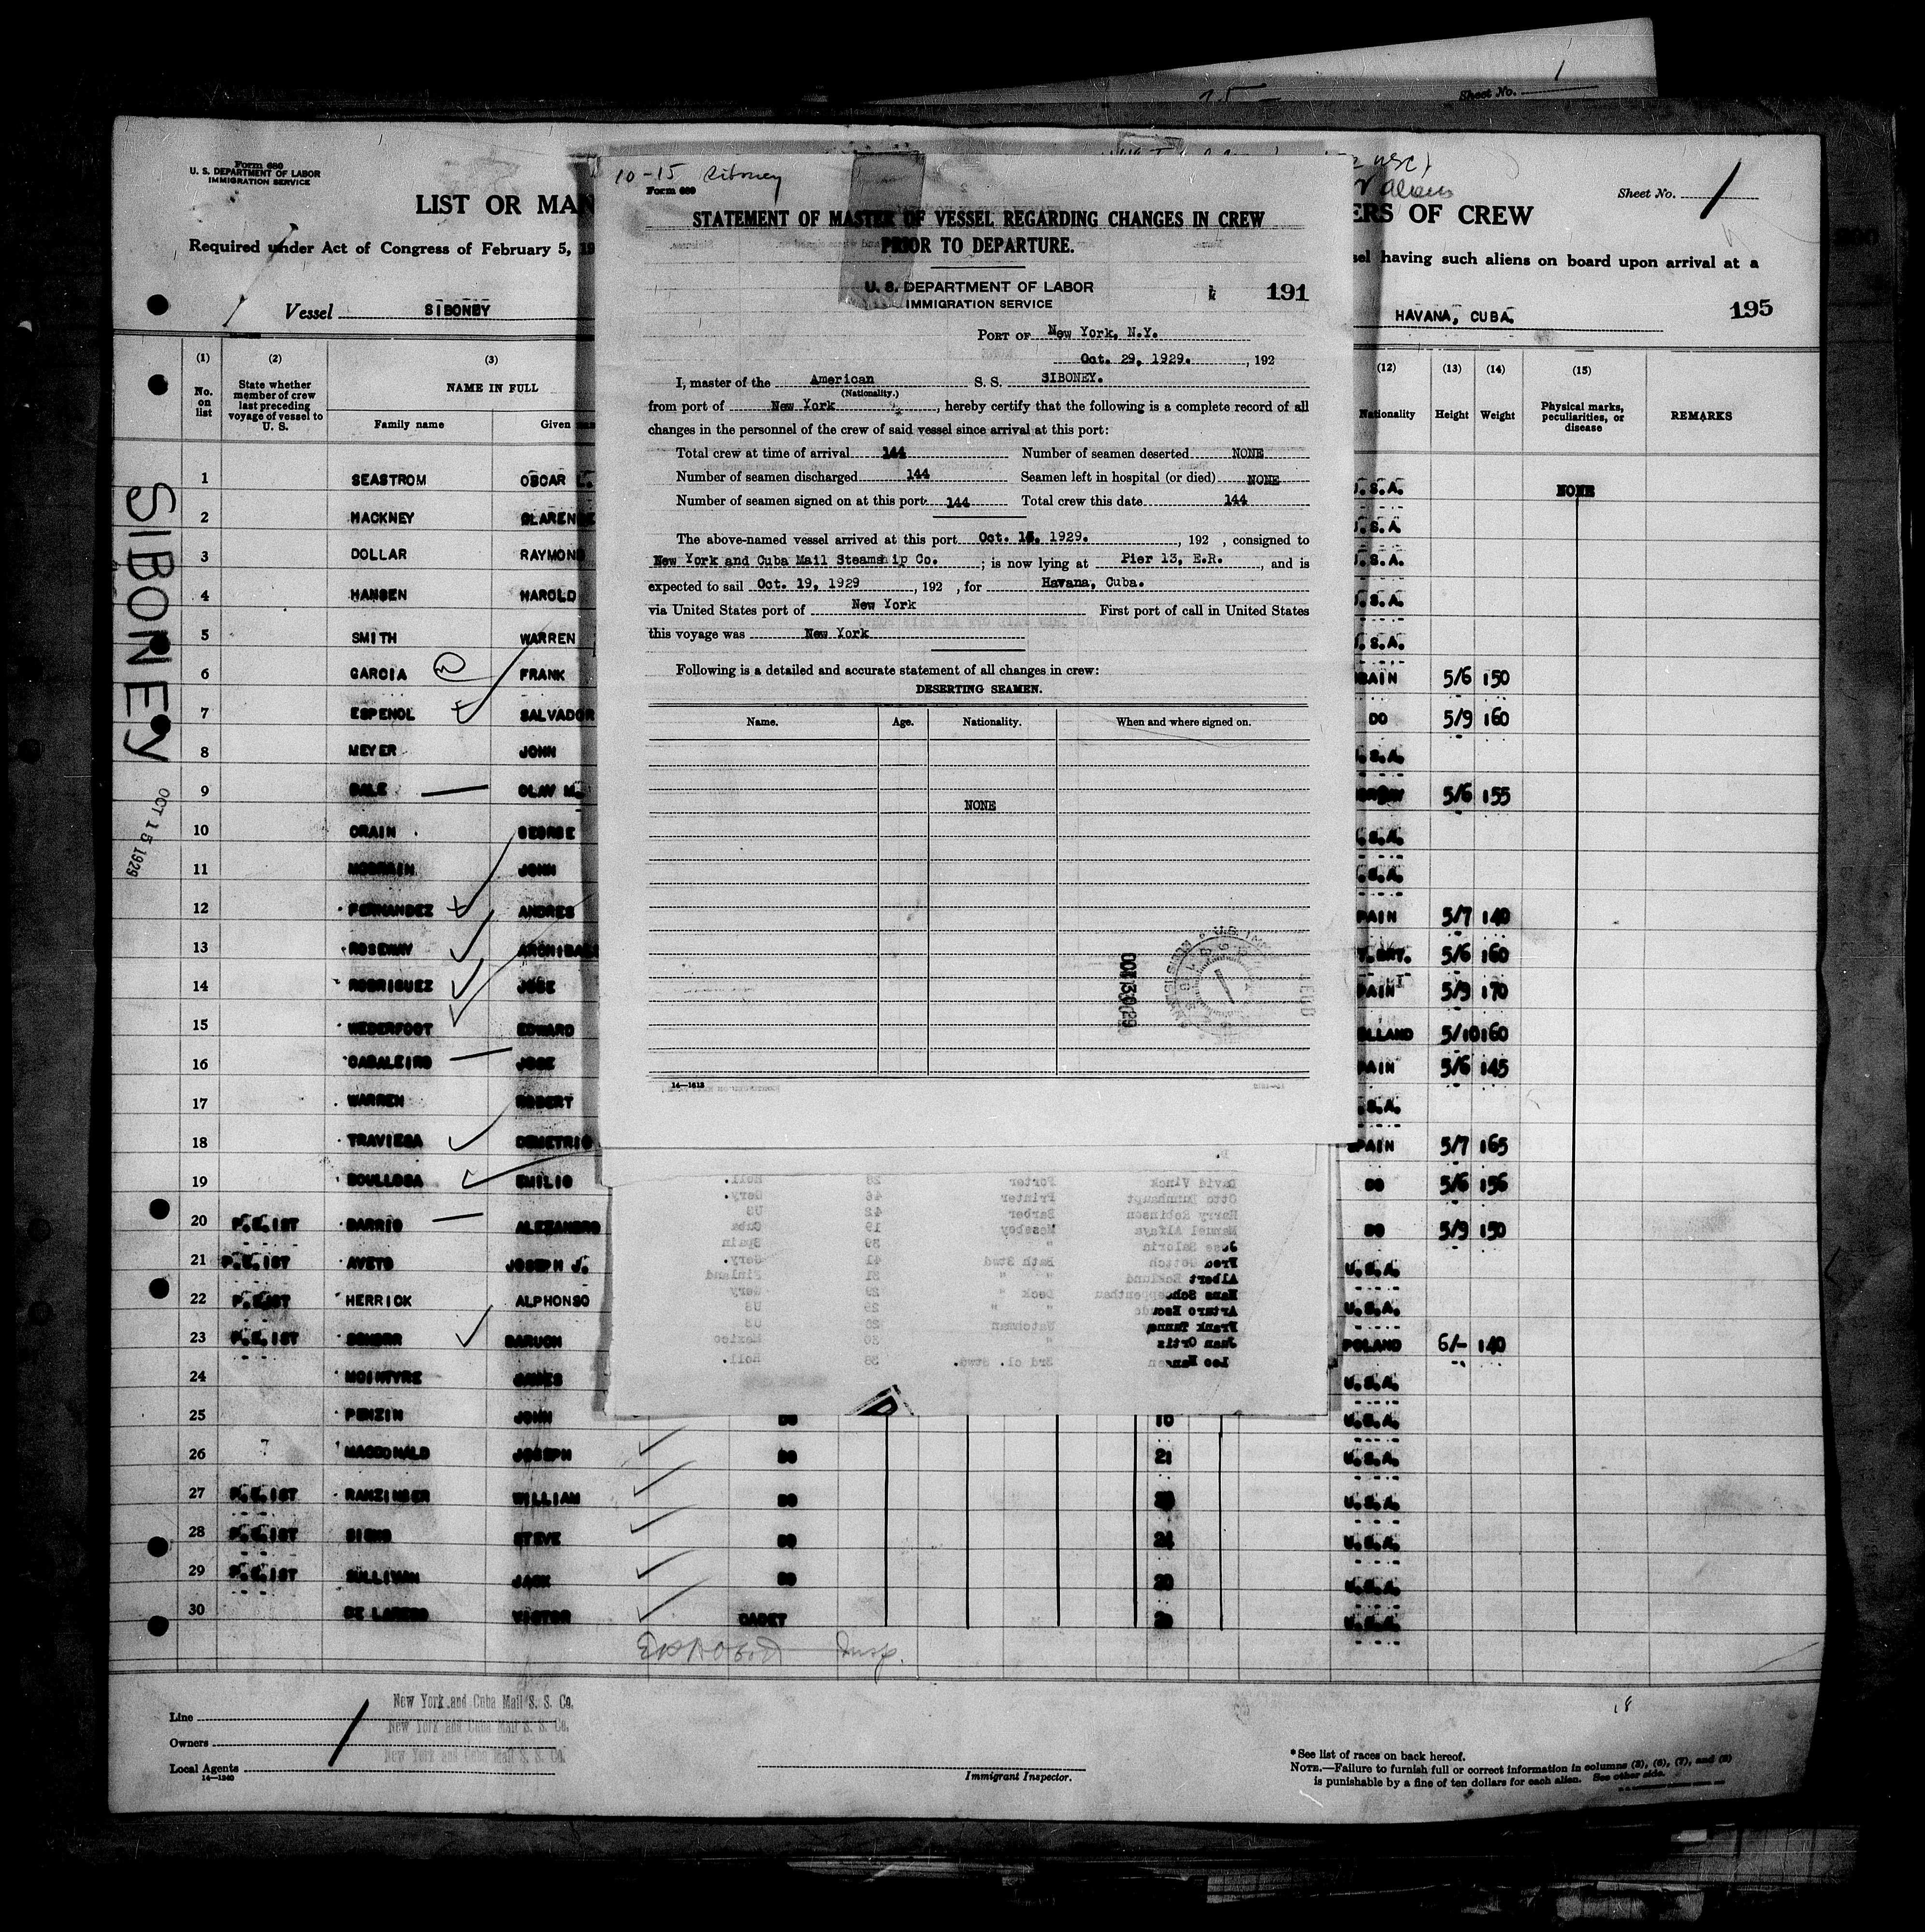 Sheet No. 1
Form 680
U. S. DEPARTMENT OF LABOR
IMMIGRATION SERVICE
LIST OR MAN
Required under Act of Congress of February 5, 19
Vessel SIBONEY
ERS OF CREW
Sheet No. 1
sel having such aliens on board upon arrival at a
HAVANA, CUBA.
195
(1) (2) (3)
No. on list
State whether member of crew last preceding voyage of vessel to U. S.
NAME IN FULL
Family name Given
(12) (13) (14) (15)
Nationality Height Weight Physical marks, peculiarities, or disease REMARKS
SIBONEY
OCT 15 1929
1 SEASTROM OSCAR L. U.S.A. NONE
2 HACKNEY CLARENCE U.S.A.
3 DOLLAR RAYMOND U.S.A.
4 HANSEN HAROLD U.S.A.
5 SMITH WARREN U.S.A.
6 GARCIA FRANK PAIN 5/6 150
7 ESPENOL SALVADOR DO 5/9 160
8 MEYER JOHN U.S.A.
9 DALE OLAV M. 5/6 155
10 CRAIN GEORGE U.S.A.
11 JOHN U.S.A.
12 FERNANDEZ ANDRES PAIN 5/7 140
13 ARCHIBALD 5/6 160
14 RODRIGUEZ JOSE PAIN 5/9 170
15 WEDERFOOT EDWARD LLAND 5/10 160
16 CABALEIRO JOSE PAIN 5/6 145
17 WARREN ROBERT .S.A.
18 TRAVIESA DEMETRIO SPAIN 5/7 165
19 BOULLOSA EMILIO DO 5/6 156
20 P.E. 1ST BARRIO ALEZANDRO DO 5/9 150
21 P.E. 1ST AVETO JOSEPH J. U.S.A.
22 P.E. 1ST HERRICK ALPHONSO U.S.A.
23 P.E. 1ST BARUCH POLAND 6/- 140
24 MCINTYRE JAMES U.S.A.
25 PENZIN JOHN DO 18 U.S.A.
26 MACDONALD JOSEPH DO 21 U.S.A.
27 P.E. 1ST RANZINGER WILLIAM DO U.S.A.
28 P.E. 1ST STEVE DO 24 U.S.A.
29 P.E. 1ST SULLIVAN JACK DO 20 U.S.A.
30 VICTOR CADET 20 U.S.A.
Insp.
Line New York and Cuba Mail S. S. Co.
Owners New York and Cuba Mail S. S. Co.
Local Agents New York and Cuba Mail S. S. Co.
14—1240
Immigrant Inspector.
*See list of races on back hereof.
NOTE.—Failure to furnish full or correct information in columns (5), (6), (7), and (8)
is punishable by a fine of ten dollars for each alien. See other side.
10-15 Siboney
Form 689
STATEMENT OF MASTER OF VESSEL REGARDING CHANGES IN CREW
PRIOR TO DEPARTURE.
U. S. DEPARTMENT OF LABOR
IMMIGRATION SERVICE
191
PORT OF New York, N.Y.
Oct. 29, 1929. , 192
I, master of the American S. S. SIBONEY.
(Nationality.)
from port of New York , hereby certify that the following is a complete record of all
changes in the personnel of the crew of said vessel since arrival at this port:
Total crew at time of arrival 144 Number of seamen deserted NONE
Number of seamen discharged 144 Seamen left in hospital (or died) NONE
Number of seamen signed on at this port 144 Total crew this date 144
The above-named vessel arrived at this port Oct. 15, 1929. , 192 , consigned to
New York and Cuba Mail Steamship Co. ; is now lying at Pier 13, E.R. , and is
expected to sail Oct. 19, 1929 , 192 , for Havana, Cuba.
via United States port of New York First port of call in United States
this voyage was New York
Following is a detailed and accurate statement of all changes in crew:
DESERTING SEAMEN.
Name. Age. Nationality. When and where signed on.
NONE
14—1613
David Vinck Porter 28 Holl.
Otto Dunnhaupt Printer 46 Gery.
Harry Robinson Barber 42 US
Manuel Alfaya Messboy 19 Cuba
Jose Salorio " 39 Spain
Fred Gottsch Bath Stwd 41 Gery.
Albert Ecklund " " 21 Finland
Hans Deck " 29 Gery
Arturo " " 29 US
Frank Watchman 20 US
Juan Ortiz " 30 Mexico
Leo Hansen 3rd cl. Stwd. 38 Holl.